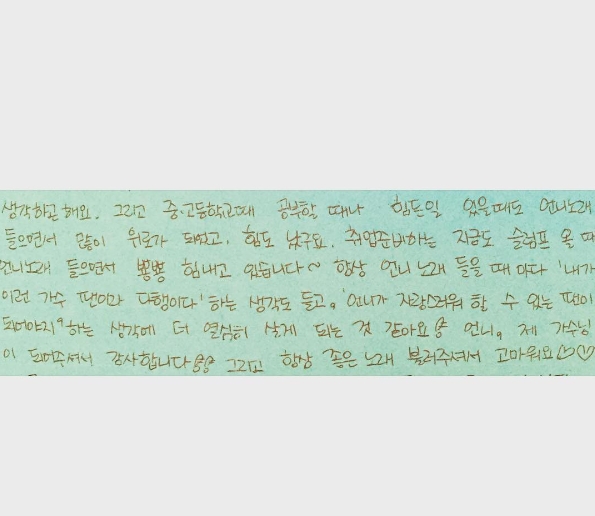 생각하곤 해요. 그리고 중.고등학교때 공부할 때나 힘든일 있을때도 언니노래
들으면서 많이 위로가 되었고, 힘도 났구요. 취업준비하는 지금도 슬럼프 올 때
언니노래 들으면서 뿅뿅 힘내고 있습니다~ 항상 언니 노래 들을 때 마다 '내가
이런 가수 팬이라 다행이다' 하는 생각도 들고, '언니가 자랑스러워 할 수 있는 팬이
되어야지' 하는 생각에 더 열심히 살게 되는 것 같아요 언니, 제 가수님
이 되어주셔서 감사합니다 그리고 항상 좋은 노래 불러주셔서 고마워요♡♡